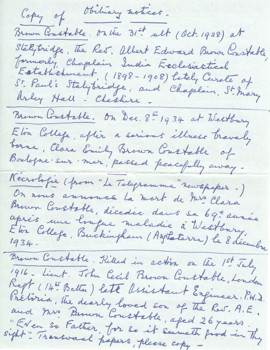 Copy of Obituary notices.
Brown Constable. On the 31st ult (Oct. 1928) at
Stalybridge, the Rev. Albert Edward Brown Constable
formerly Chaplain India Ecclesiastical
Establishment, (1898-1908) lately Curate of
St. Paul's Stalybridge, and Chaplain, St. Mary
Arley Hall - Cheshire.
Brown Constable. On Dec. 8th 1934 at Westbury
Eton College, after a serious illness bravely
borne, Clara Emily Brown Constable of
Boulogne-sur-mer, passed peacefully away -
Nécrologie (from "Le Telegramme" newspaper -)
On nous annonce la mort de Mrs Clara
Brown Constable, décedée dans sa 69e année
après une longue maladie à Westbury,
Eton College, Buckingham (Angleterre) le 8 decembre
1934.
Brown Constable. Killed in action on the 1st July
1916. Lieut. John Cecil Brown Constable, London
Regt (14th Battn) late Assistant Engineer, P.W.D.
Pretoria, the dearly loved son of the Rev. A. E.
and Mrs. Brown Constable, aged 26 years.
- Even so Father, for so it seemeth good in thy
sight - Transvaal papers, please copy -